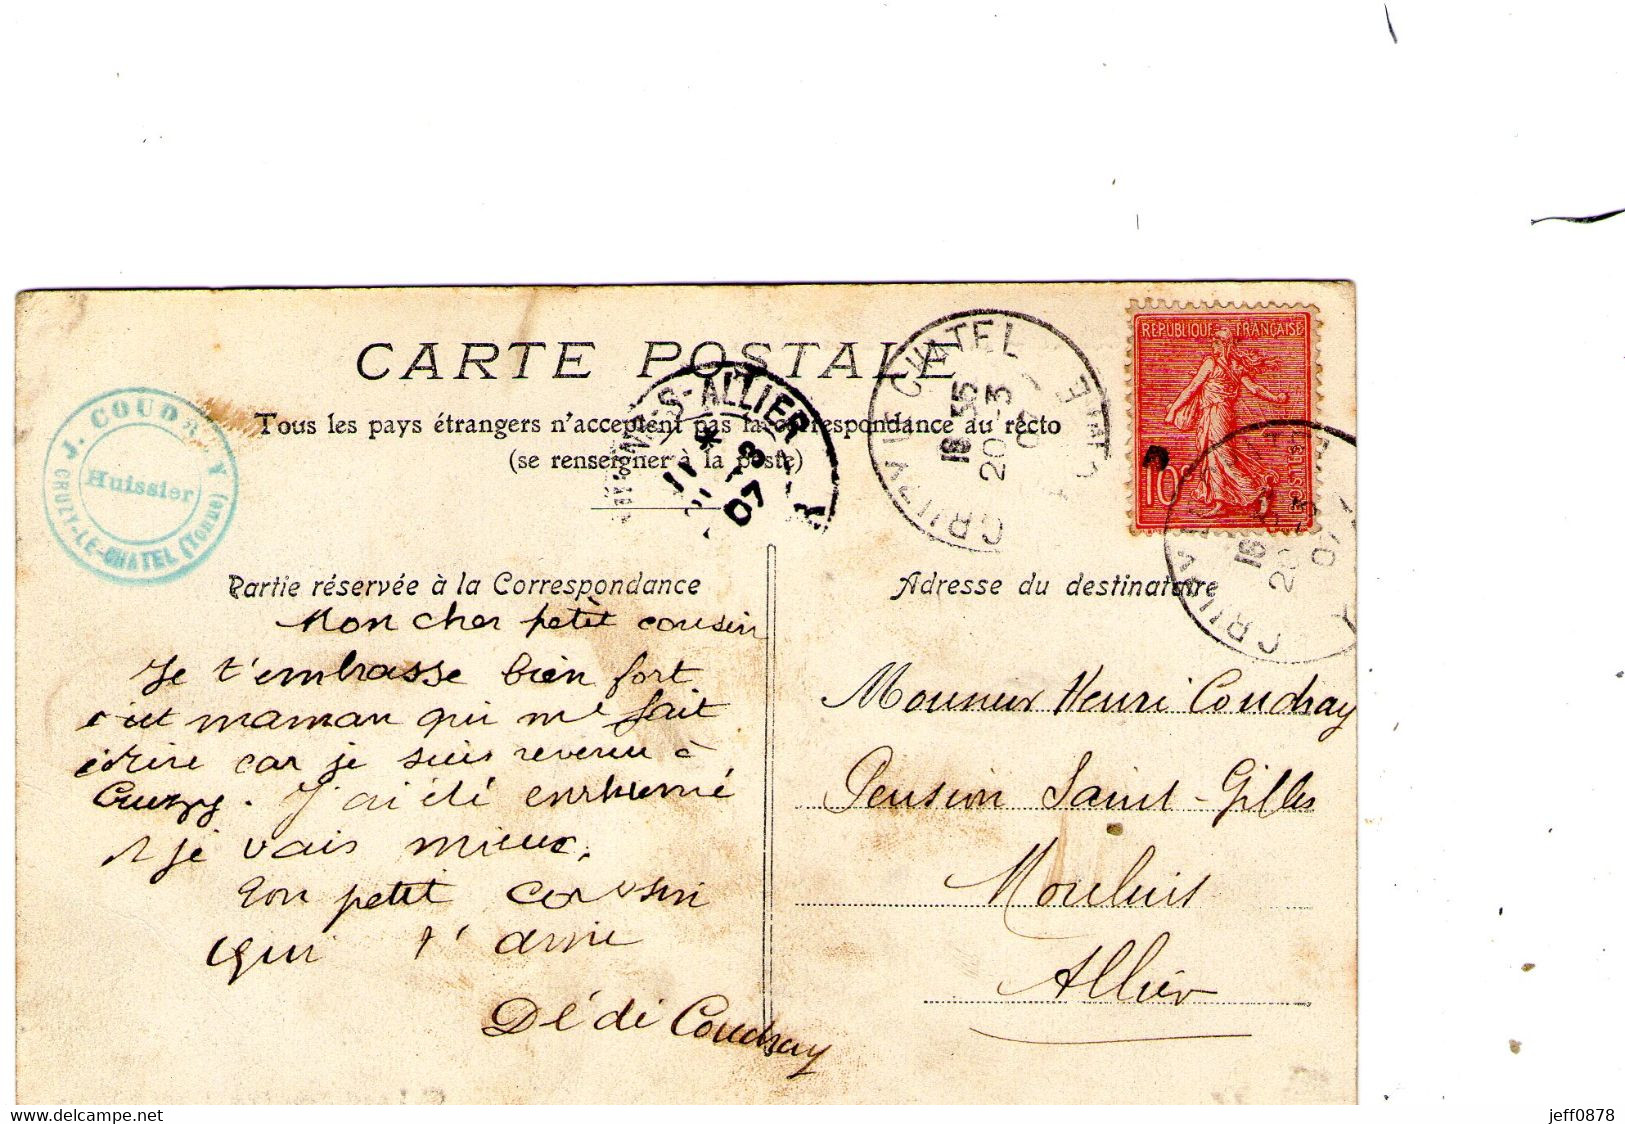 CARTE POSTALE
Tous les pays étrangers n'acceptent pas la correspondance au recto
(se renseigner à la poste)
J. COUDRAY
Huissier
CRUZY-LE-CHATEL (Yonne)
MOULINS-S-ALLIER
11 * 
21 -3
07
CRUZY LE CHATEL
16 55
20 -3
07
REPUBLIQUE FRANÇAISE
10c
POSTES
CRUZY
16
20 -3
07
Partie réservée à la Correspondance
Adresse du destinataire
Mon cher petit cousin
Je t'embrasse bien fort
c'est maman qui me fait
écrire car je suis revenu à
Cruzy. J'ai été enrhumé
et je vais mieux.
Ton petit cousin
qui t'aime
Dédi Coudray
Monsieur Henri Coudray
Pension Saint-Gilles
Moulins
Allier
delcampe.net
jeff0878